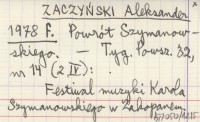 ZACZYŃSKI Aleksander
1978 r. Powrót Szymanow-
skiego. — Tyg. Powsz. 32,
nr 14 (2 IV) :
Festiwal muzyki Karola
Szymanowskiego w Zakopanem.